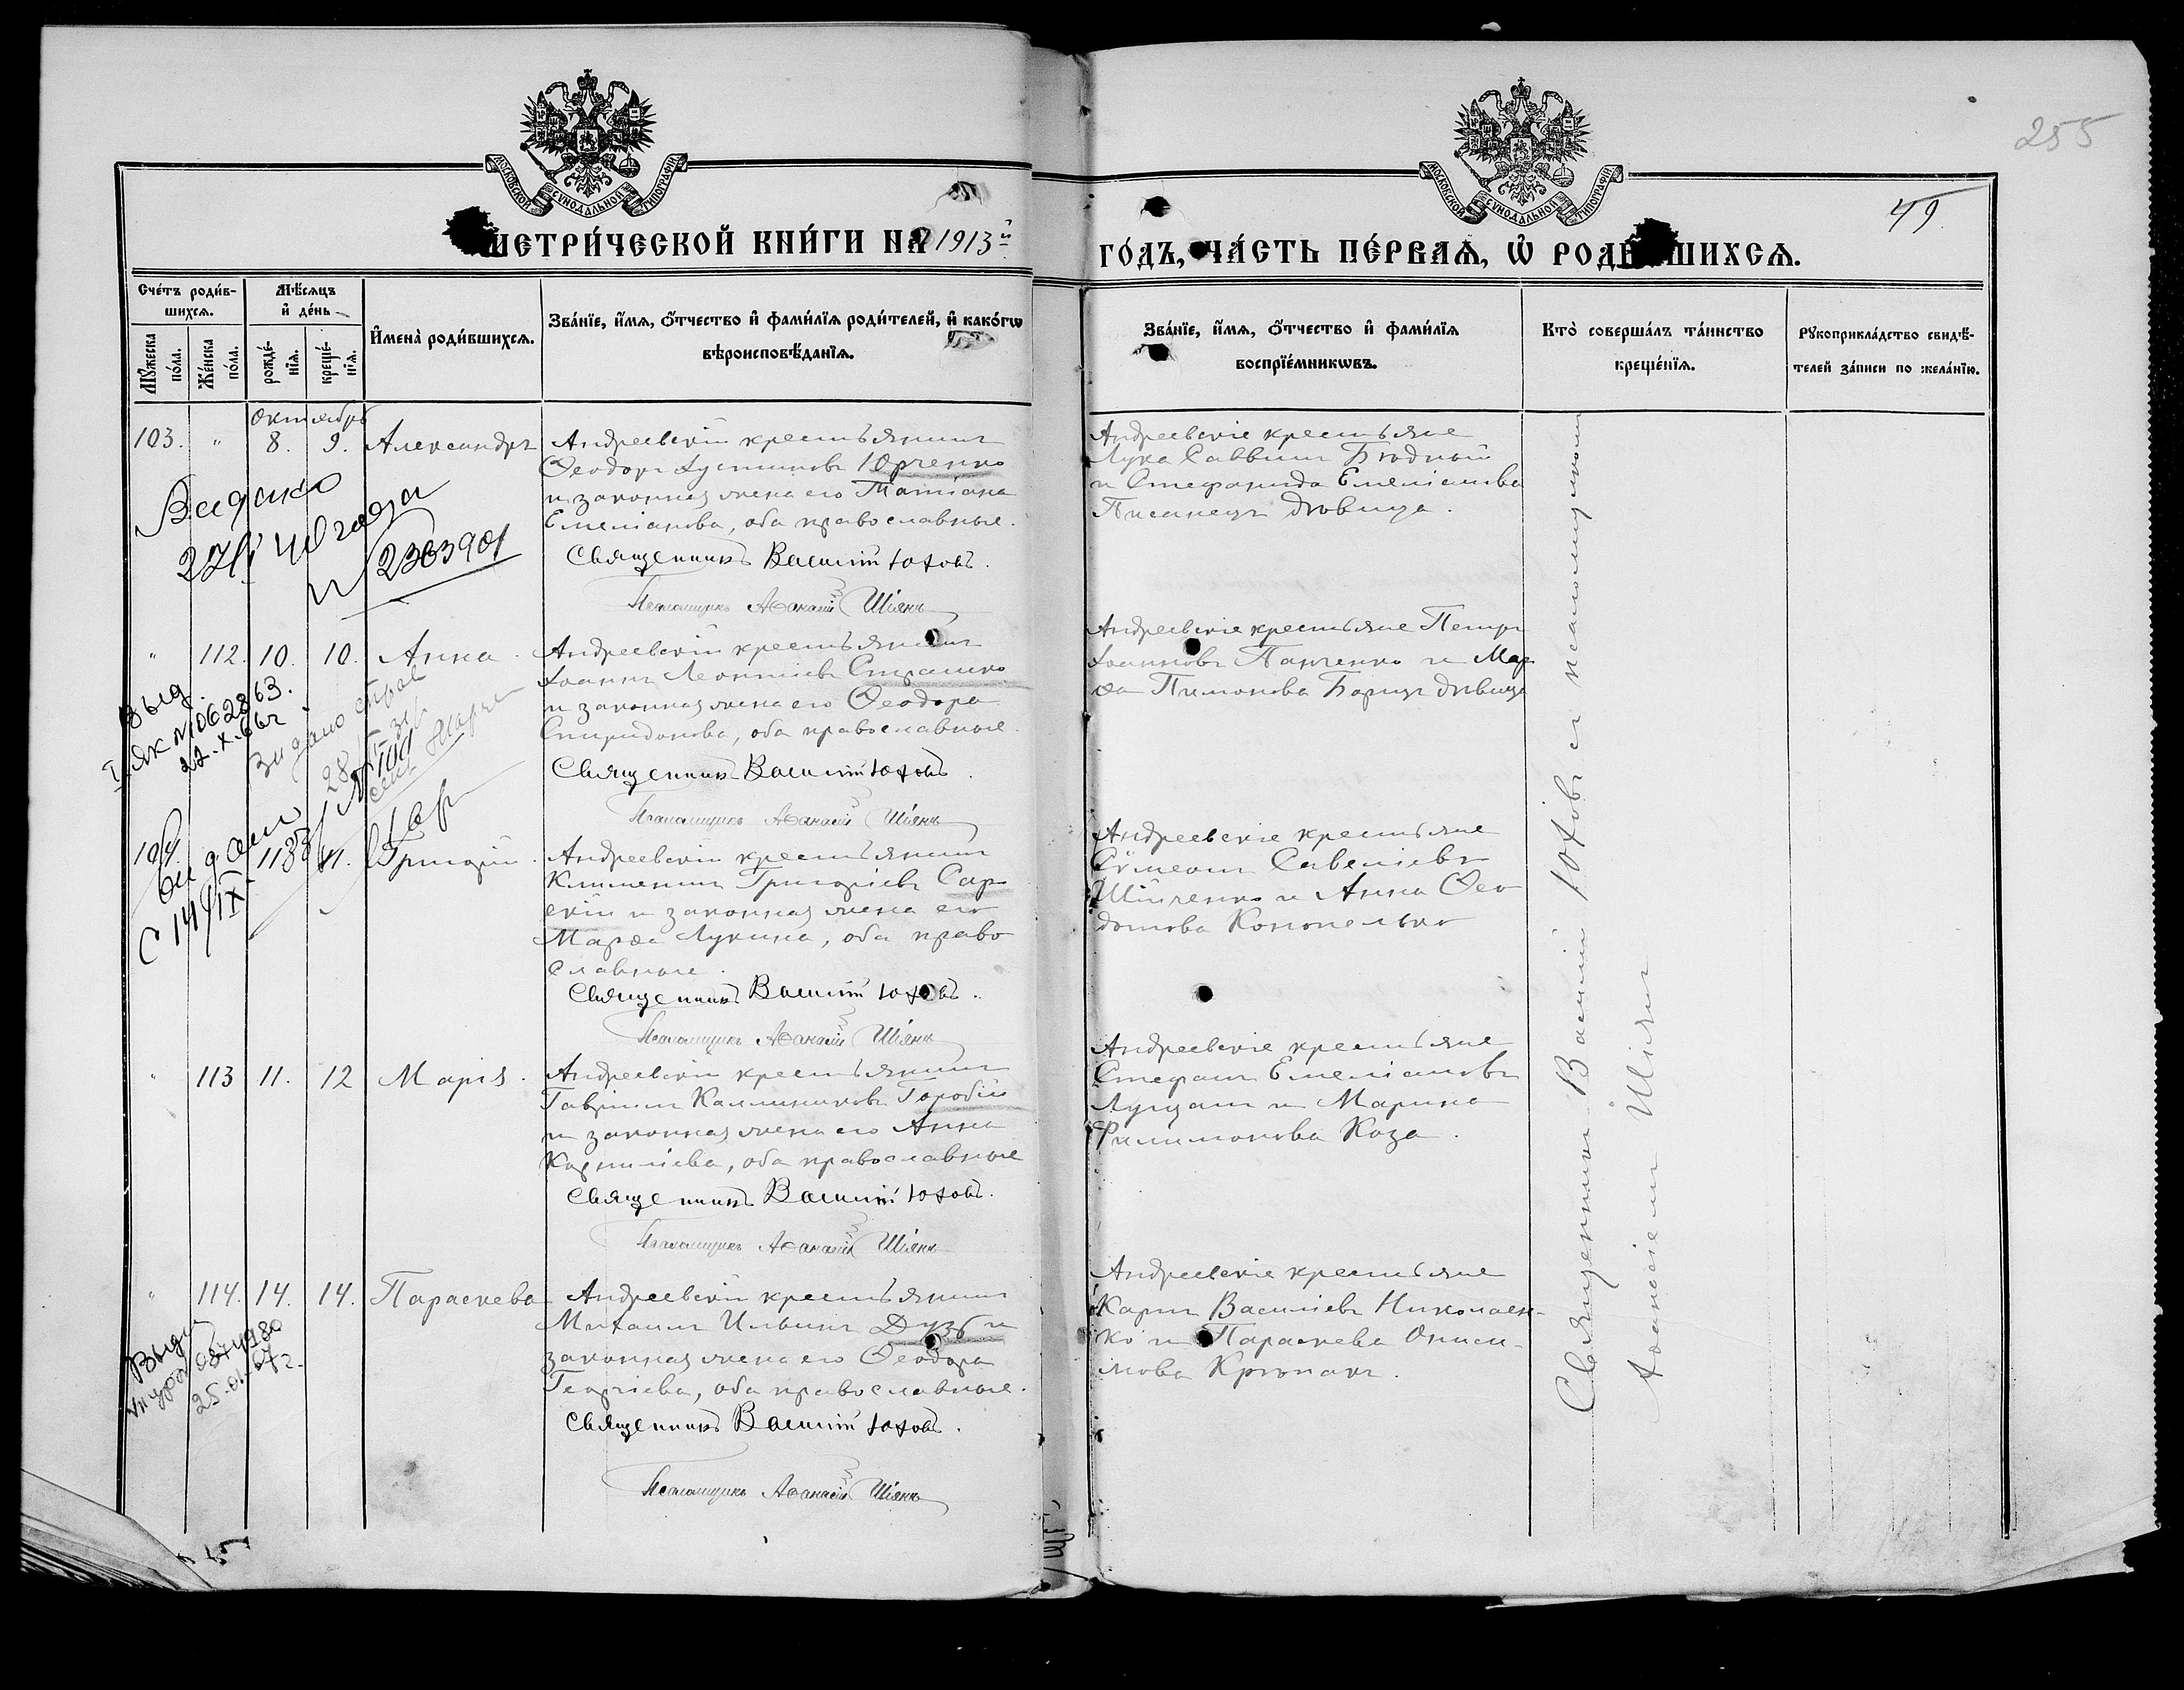 255
49.
МОСКОВСКОЙ СѴНОДАЛЬНОЙ ТИПОГРАФІИ
МОСКОВСКОЙ СѴНОДАЛЬНОЙ ТИПОГРАФІИ
МЕТРИ́ЧЕСКОЙ КНИ́ГИ НА 1913й
ГО́ДЪ, ЧА́СТЬ ПЕ́РВАѦ, Ѡ҆ РОДИ́ВШИХСѦ.
Сче́тъ роди́в-
шихсѧ.
Мѣ́сѧцъ
и҆ де́нь
Мꙋ́жеска
по́ла.
Же́нска
по́ла.
рожде́-
нїѧ.
креще́-
нїѧ.
И҆мена̀ роди́вшихсѧ.
Зва́нїе, и҆́мѧ, ѻ҆́тчество и҆ фами́лїѧ роди́телей, и҆ како́гѡ
вѣроисповѣ́данїѧ.
Зва́нїе, и҆́мѧ, ѻ҆́тчество и҆ фами́лїѧ
воспрїе́мникѡвъ.
Кто̀ соверша́лъ та́инство
креще́нїѧ.
Рꙋкоприкла́дство свидѣ́-
телей за́писи по жела́нїю.
Октябрь
103. " 8. 9. Александръ
Андреевскій крестьянинъ
Ѳеодоръ Іустиновъ Юрченко
и законная жена его Татіана
Емеліанова, оба православные.
Священникъ Василій Юховъ.
Псаломщикъ Аѳанасій Шіянъ
Андреевскіе крестьяне
Лука Саввинъ Бѣдный
и Стефанида Емеліанова
Писанецъ дѣвица.
Видано
2303901
" 112. 10. 10. Анна.
Андреевскій крестьянинъ
Іоаннъ Леонтіевъ Страшко
и законная жена его Ѳеодора
Спиридонова, оба православные.
Священникъ Василій Юховъ.
Псаломщикъ Аѳанасій Шіянъ
Андреевскіе крестьяне Петръ
Іоанновъ Панченко и Мар
ѳа Пимонова Борицъ дѣвица
Выд.
№ 062863.
22-X-66г
104. 11. Григорій.
Андреевскій крестьянинъ
Климентъ Григоріевъ Сар
скій и законная жена его
Марѳа Лукина, оба право
славные.
Священникъ Василій Юховъ.
Псаломщикъ Аѳанасій Шіянъ
Андреевскіе крестьяне
Сѵмеонъ Савеліевъ
Шійченко и Анна Ѳео
домова Конопелько
14/IX
" 113 11. 12 Марія.
Андреевскій крестьянинъ
Гавріилъ Каллиниковъ Горобій
и законная жена его Анна
Корниліева, оба православные
Священникъ Василій Юховъ.
Псаломщикъ Аѳанасій Шіянъ
Андреевскіе крестьяне
Стефанъ Емеліановъ
Луцанъ и Марина
Филимонова Коза.
" 114. 14. 14. Параскева
Андреевскій крестьянинъ
Михаилъ Ильинъ Дузь и
законная жена его Ѳеодора
Георгіева, оба православные.
Священникъ Василій Юховъ.
Псаломщикъ Аѳанасій Шіянъ
Андреевскіе крестьяне
Карпъ Василіевъ Николаен-
ко и ПараскеваОниси-
мова Крюпакъ.
25-01-67г.
Священникъ Василій Юховъ съ псаломщикомъ
Аѳанасіемъ Шіяномъ